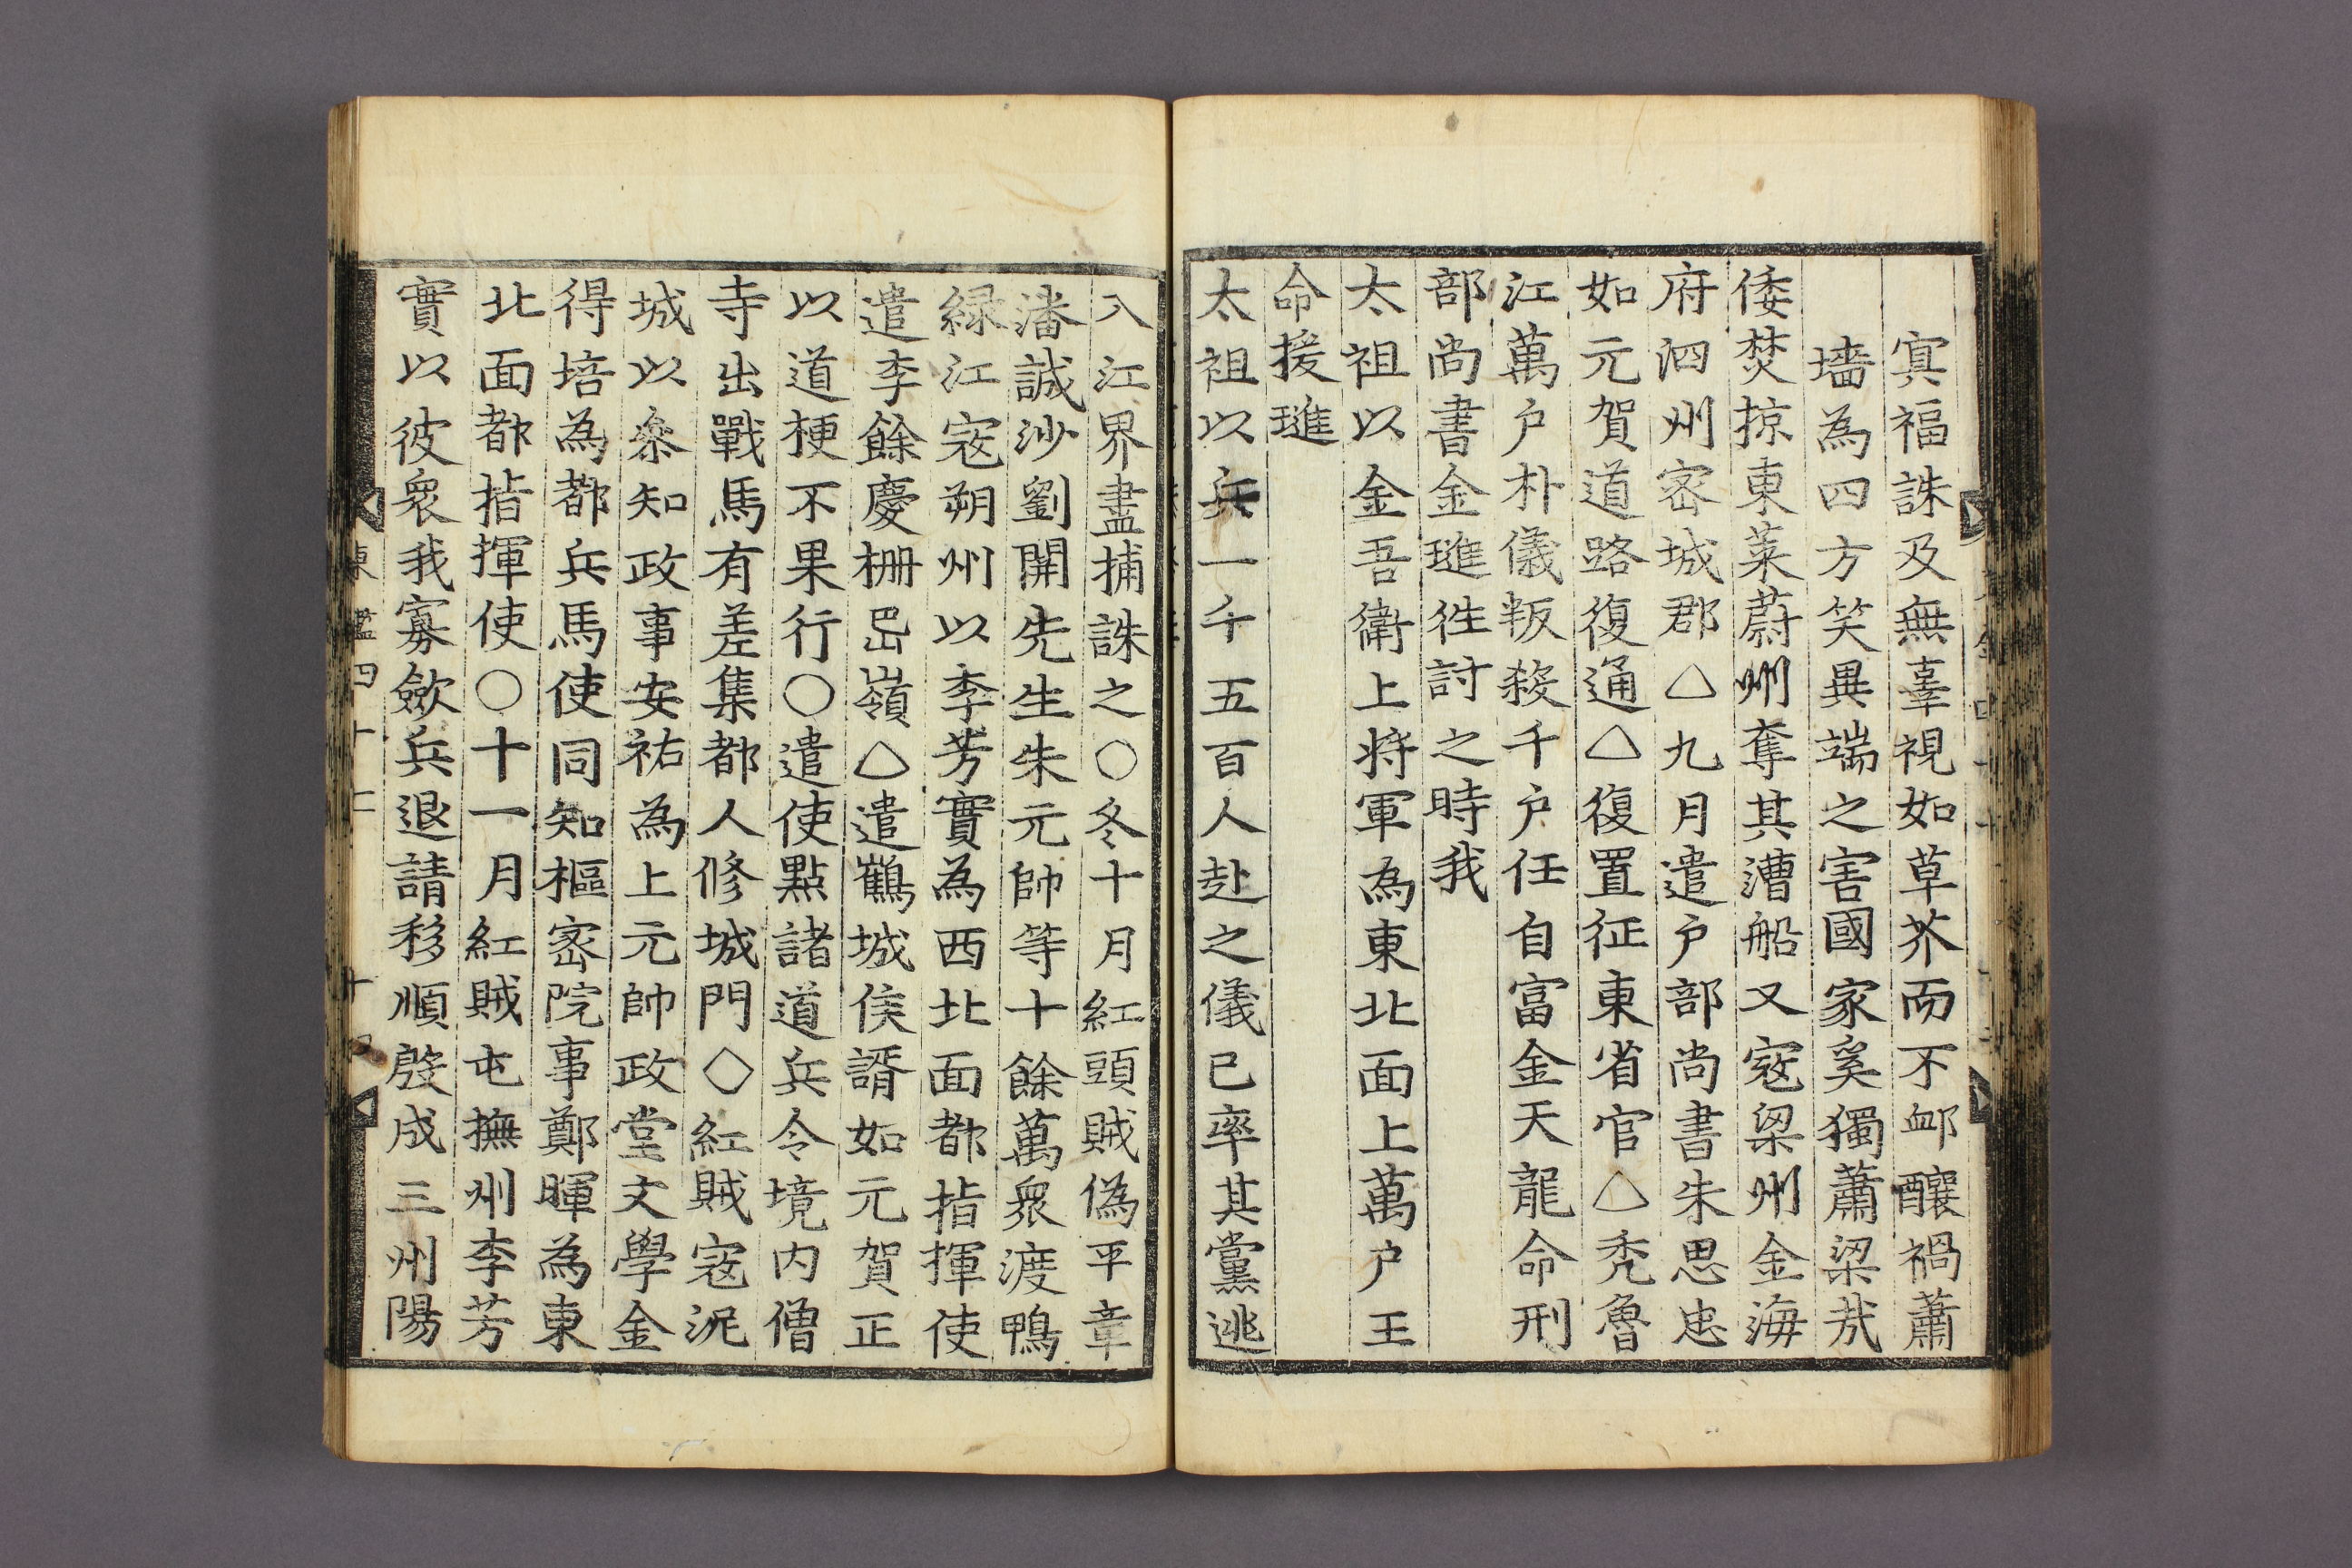 寘福誅及無辜視如草芥而不卹釀禍蕭
墻為四方笑異端之害國家奚獨蕭梁㢤
倭焚掠東萊蔚州奪其漕船又寇梁州金海
府泗州密城郡△九月遣户部尚書朱思忠
如元賀道路復通△復置征東省官△禿魯
江萬户朴儀叛殺千户任自富金天龍命刑
部尚書金璡往討之時我
太祖以金吾衛上将軍為東北面上萬户王
命援璡
太祖以兵一千五百人赴之儀已率其黨逃
入江界盡捕誅之○冬十月紅頭賊偽平章
潘誠沙劉關先生朱元帥等十餘萬衆渡鴨
緑江寇朔州以李芳實為西北面都指揮使
遣李餘慶柵岊嶺△遣鶴城侯諝如元賀正
以道梗不果行○遣使點諸道兵令境内僧
寺出戰馬有差集都人修城門◇紅賊寇泥
城以叅知政事安祐為上元帥政堂文學金
得培為都兵馬使同知樞密院事鄭暉為東
北面都指揮使○十一月紅賊屯撫州李芳
實以彼衆我寡斂兵退請移順殷成三州陽
鑑四十二